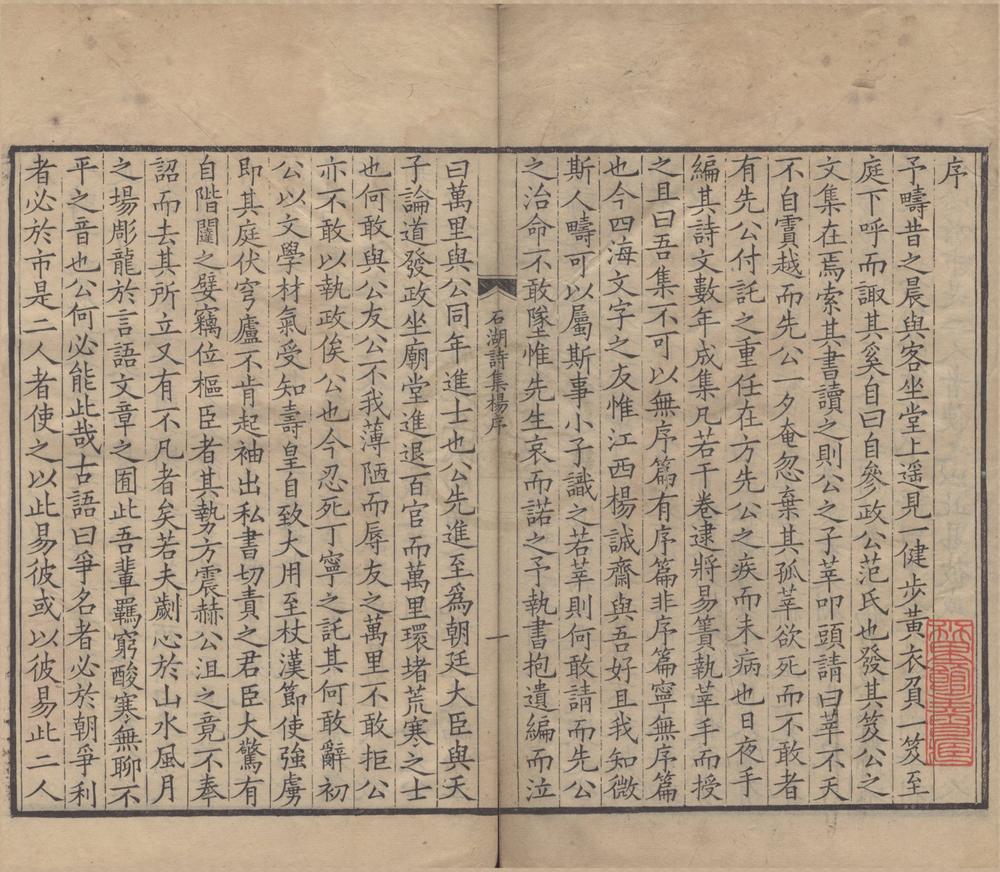 序
予疇昔之晨與客坐堂上遥見一健步黃衣負一笈至
庭下呼而諏其奚自曰自參政公范氏也發其笈公之
文集在焉索其書讀之則公之子莘叩頭請曰莘不天
不自霣越而先公一夕奄忽棄其孤莘欲死而不敢者
有先公付託之重任在方先公之疾而未病也日夜手
編其詩文數年成集凡若干卷逮將易簀執莘手而授
之且曰吾集不可以無序篇有序篇非序篇寧無序篇
也今四海文字之友惟江西楊誠齋與吾好且我知微
斯人疇可以屬斯事小子識之若莘則何敢請而先公
之治命不敢墜惟先生哀而諾之予執書抱遺編而泣
石湖詩集楊序
一
曰萬里與公同年進士也公先進至爲朝廷大臣與天
子論道發政坐廟堂進退百官而萬里環堵荒寒之士
也何敢與公友公不我薄陋而辱友之萬里不敢拒公
亦不敢以執政俟公也今忍死丁寧之託其何敢辭初
公以文學材氣受知壽皇自致大用至杖漢節使強虜
即其庭伏穹廬不肯起袖出私書切責之君臣大驚有
自階闥之嬖竊位樞臣者其勢方震赫公沮之竟不奉
詔而去其所立又有不凡者矣若夫劌心於山水風月
之場彫龍於言語文章之囿此吾輩羈窮酸寒無聊不
平之音也公何必能此哉古語曰爭名者必於朝爭利
者必於市是二人者使之以此易彼或以彼易此二人